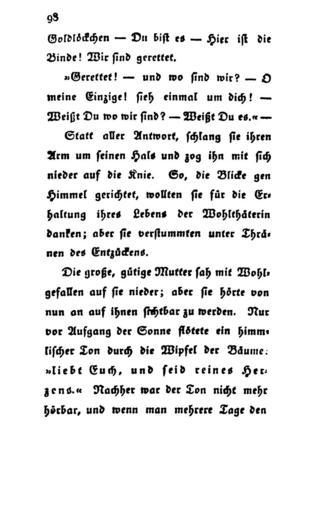 98
Goldlöckchen — Du bist es — Hier ist die
Binde! Wir sind gerettet.
»Gerettet! — und wo sind wir? — O
meine Einzige! sieh einmal um dich! —
Weißt Du wo wir sind? — Weißt Du es.« —
Statt aller Antwort, schlang sie ihren
Arm um seinen Hals und zog ihn mit sich
nieder auf die Knie. So, die Blicke gen
Himmel gerichtet, wollten sie für die Er-
haltung ihres Lebens der Wohlthäterin
danken; aber sie verstummten unter Thrä-
nen des Entzückens.
Die große, gütige Mutter sah mit Wohl-
gefallen auf sie nieder; aber sie hörte von
nun an auf ihnen sichtbar zu werden. Nur
vor Aufgang der Sonne flötete ein himm-
lischer Ton durch die Wipfel der Bäume:
»liebt Euch, und seid reines Her-
zens.« Nachher war der Ton nicht mehr
hörbar, und wenn man mehrere Tage den